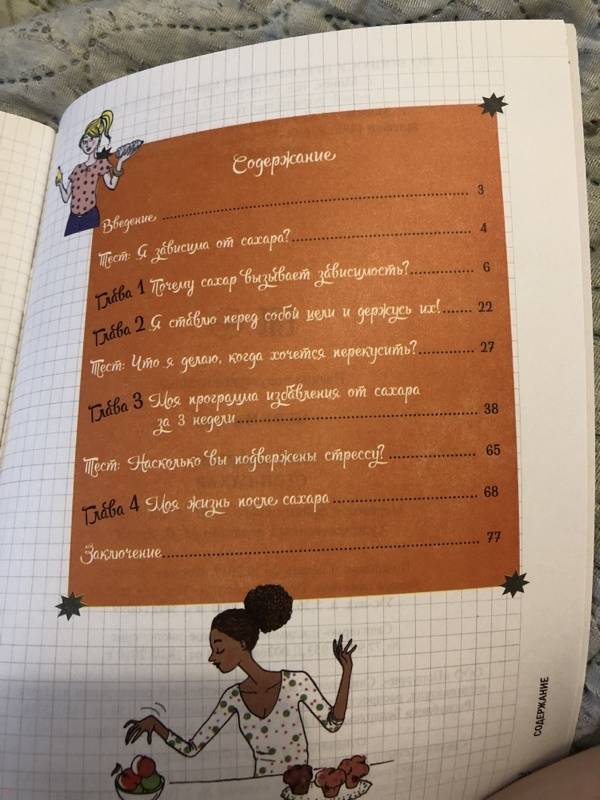 Содержание
Введение 3
Тест: Я зависима от сахара? 4
Глава 1 Почему сахар вызывает зависимость? 6
Глава 2 Я ставлю перед собой цели и держусь их! 22
Тест: Что я делаю, когда хочется перекусить? 27
Глава 3 Моя программа избавления от сахара
за 3 недели 38
Тест: Насколько вы подвержены стрессу? 65
Глава 4 Моя жизнь после сахара 68
Заключение 77
СОДЕРЖАНИЕ